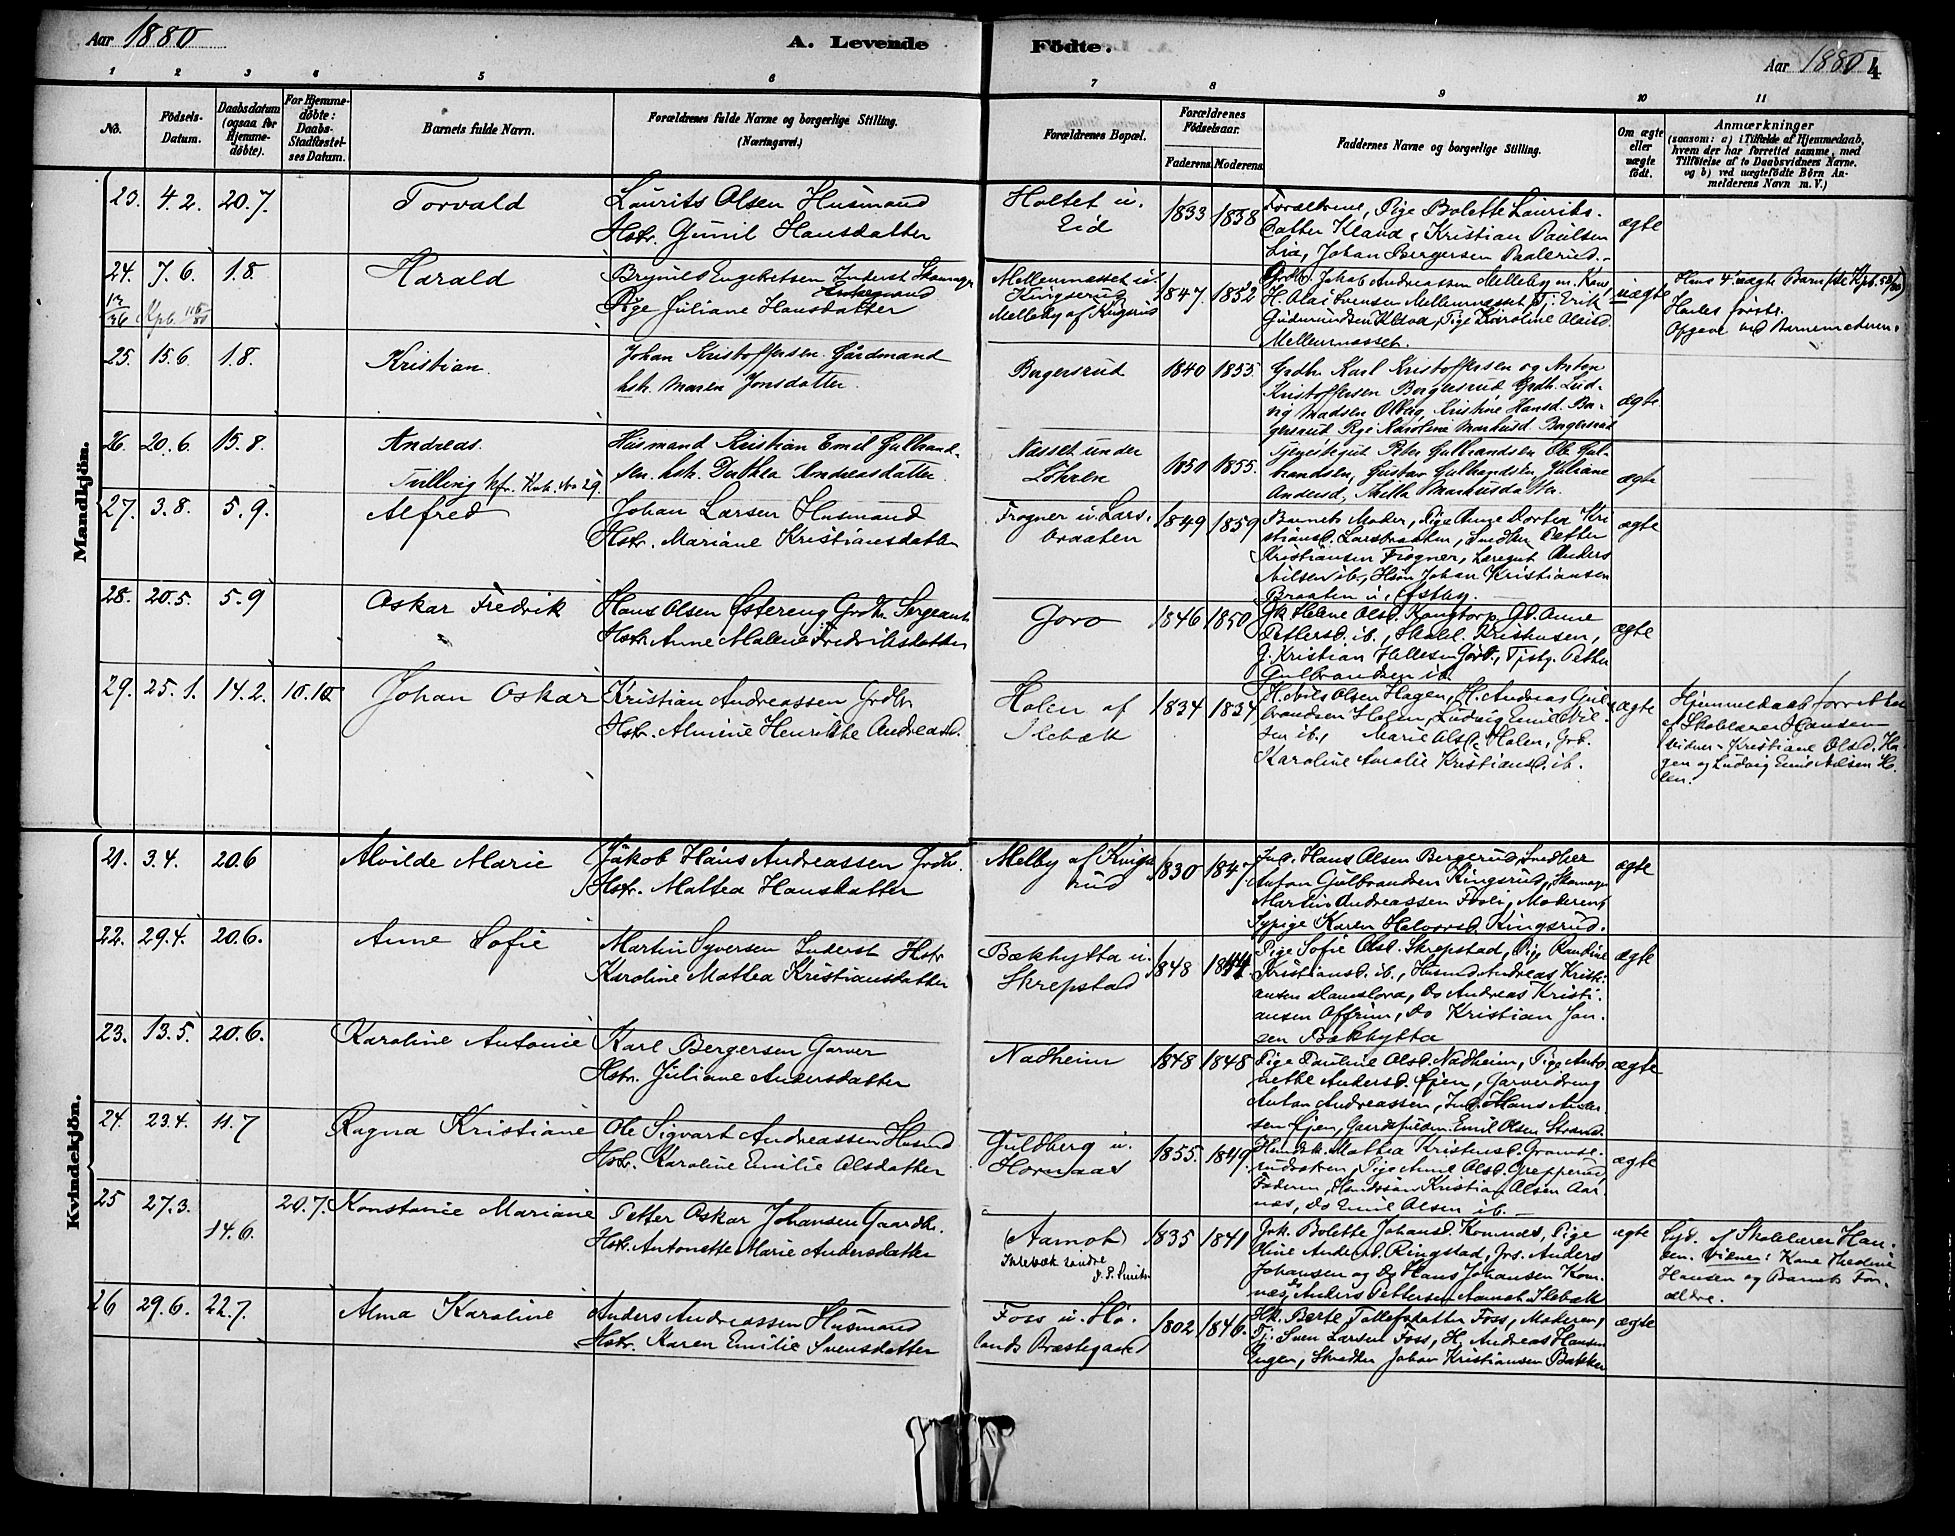 Aar 1880
A. Levende
Födte.
Aar 1880
4
1 2 3 4 5 6 7 8 9 10 11
No.
Födsels-Datum.
Daabsdatum (ogsaa for Hjemme-döbte).
For Hjemme-döbte: Daabs-Stadfæstel-ses Datum.
Barnets fulde Navn.
Forældrenes fulde Navne og borgerlige Stilling.
(Næringsvei.)
Forældrenes Bopæl.
Forældrenes Födselsaar.
Faderens. Moderens.
Faddernes Navne og borgerlige Stilling.
Om ægte eller uægte födt.
Anmærkninger
(saasom: a) i Tilfælde af Hjemmedaab,
hvem der har forrettet samme, med
Tilföielse af to Daabsvidners Navne.
og b) ved uægtefödte Börn An-
melderens Navn m. V.)
Mandkjön.
23. 4.2. 20.7. Torvald
Laurits Olsen Husmand
Hstr. Gunil Hansdatter
Holtet u.
Eid
1833 1838
Forældrene, Pige Bolette Laurits-
datter Kland, Kristian Paulsen
Lia, Johan Bergersen Paalerud.
ægte
24. 7.6. 1.8. Harald
Brynild Engebretsen Inderst Skomager
Pige Juliane Hansdatter
Mellemnæsset u.
Kingsrud
Melleby af Kingsrud
1847 1852
Grdbr. Jakob Andreassen Melleby m. Kone,
H. Olai Svensen Mellemnæsset, Tj. Erik
Gudmundsen Kleva, Pige Karoline Olaisd.
Mellemnæsset.
uægte
Hans 4 uægte Barn
Hendes første.
Opgave ved Barnemoderen.
25. 15.6. 1.8. Kristian.
Johan Kristoffersen Gårdmand
hstr. Maren Jonsdatter.
Bergersrud 1840 1855.
Grdbr. Karl Kristoffersen og Anton
Kristoffersen Bergersrud Grdbr. Lud-
vig Madsen Olberg, Kristine Hansd. Ber-
gersrud Pige Karoline Markusd Bergersrud
ægte
26. 20.6. 15.8. Andreas.
Tvilling
Husmand Kristian Emil Gulbrand-
sen. hstr. Dorthea Andreasdatter.
Næsset under
Löhren
1850 1855.
Tjenestegut Peter Gulbrandsen Ole Gul-
brandsen, Gustav Gulbrandsen Juliane
Andersd, Thilla Markusdatter.
ægte
27. 3.8. 5.9. Alfred
Johan Larsen Husmand
Hstr. Mariane Kristiansdatter
Frogner u. Lars-
braaten
1849 1859
Barnets Moder, Pige Inge Dortea Kri
stiansd. Larsbraaten, Smedbr Petter
Kristiansen Frogner, Læregut Anders
Nilsen ib., Hsön Johan Kristiansen
Braaten u. Østby.
ægte
28. 20.5. 5.9 Oskar Fredrik
Hans Olsen Østereng Grdbr. Sergeant
Hstr. Anne Malene Fredriksdatter
Goro 1846 1850
Gk. Helene Olsd. Kongtorp, Gd. Anne
Pettersd. ib.,
G. Kristian Hellesen Goro, Petter
Gulbrandsen ib.
ægte
29. 25.1. 14.2. 10.10. Johan Oskar
Kristian Andreassen Grdbr
Hstr. Almine Henriette Andreasd.
Holen af
Ilebæk
1834 1834
H. Nils Olsen Hagen, H. Andreas Gul-
brandsen Holen, Ludvig Emil Nil-
sen ib., Marie Olsd. Holen, Grk.
Karoline Amalie Kristiansd. ib.
ægte
Hjemmedaab forrettet
af Skolelærer Hansen
Vidner - Kristiane Olsd. Ha-
gen og Ludvig Emil Nilsen Ho-
len.
Kvindekjön.
21. 3.4. 20.6 Alvilde Marie
Jakob Hans Andreassen Grdbr.
Hstr. Mattea Hansdatter
Melby af Kings-
rud
1830 1847
Ind. Hans Olsen Bergerud, Snedker
Anton Gulbrandsen Kingsrud, Skomager
Martin Andreassen Fooli, Moderen,
Sypige Karen Halvorsd. Kingsrud.
ægte
22. 29.4. 20.6. Anne Sofie
Martin Syversen Inderst Hstr
Karoline Mattea Kristiansdatter
Bækhytta u.
Skrepstad
1848 1844
Pige Sofie Olsd. Skrepstad, Pige Randine
Kristiansd. ib., Husmd Andreas Kristi-
ansen, Do Andreas Kristi-
ansen, Do Kristian Jan-
sen Bækhytta
ægte
23. 13.5. 20.6. Karoline Antonie
Karl Bergersen Garver
Hstr. Juliane Andersdatter
Nadheim 1848 1848
Pige Pauline Olsd. Nadheim, Pige Anto-
nette Andersd. Øjen, Garverdreng
Anton Andreassen, Ind. Hans Ander-
sen Øjen, Emil Olsen Strand.
ægte
24. 23.4. 11.7 Ragna Kristiane
Ole Sigvart Andreassen Husmd
Hstr. Karoline Emilie Olsdatter
Guldberg u.
Hornaas
1855. 1849.
Mathea Kristensd.
Pige Anne Olsd. Grepperud,
Faderen, Handelsmn Kristian Olsen Aar-
næs, do Emil Olsen ib.
ægte
25 27.3. 14.6. 20.7. Konstance Mariane
Petter Oskar Johansen Gaardbr.
Hstr. Antonette Marie Andersdatter
(Aamot)
Ilebæk söndre
1835 1841
Grk. Bolette Johansd. Komnæs, Pige
Oline Andersd. Ringstad, Grs. Anders
Johansen og Do Hans Johansen Kom-
næs, Anders Pettersen Aamot Ilebæk
ægte
af Skolelærer Han-
sen. Vidner: Kone Thedine
Hansen og Barnets For-
ældre.
26 29.6. 22.7. Alma Karoline
Anders Andreassen Husmand
Hstr. Karen Emilie Svensdatter
Foss u. Hö-
lands Præstegaard
1802 1846.
Hk. Berte Tollefsdatter Foss, Moderen,
Tj. Sven Larsen Foss, H. Andreas Hansen
Engen, Skrædder Johan Kristiansen Bakken
ægte